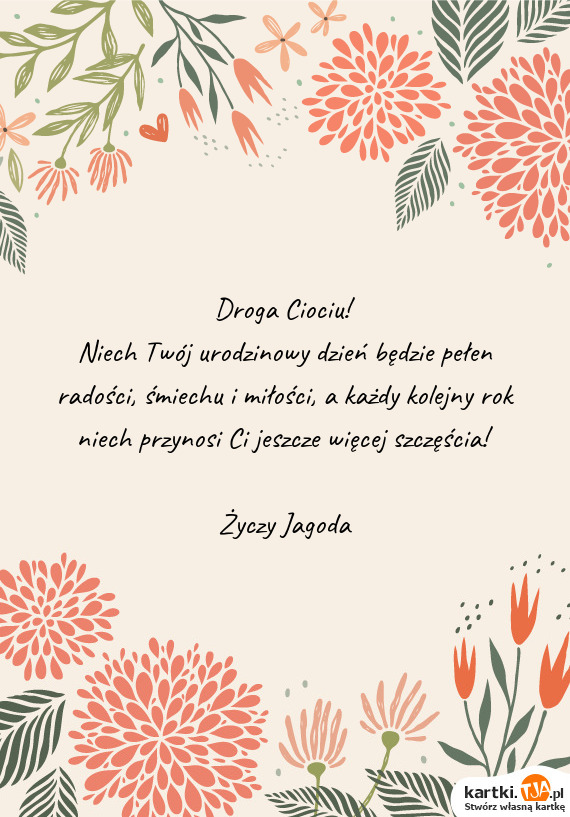 Droga Ciociu!
Niech Twój urodzinowy dzień będzie pełen
radości, śmiechu i miłości, a każdy kolejny rok
niech przynosi Ci jeszcze więcej szczęścia!
Życzy Jagoda
kartki.TJA.pl
Stwórz własną kartkę